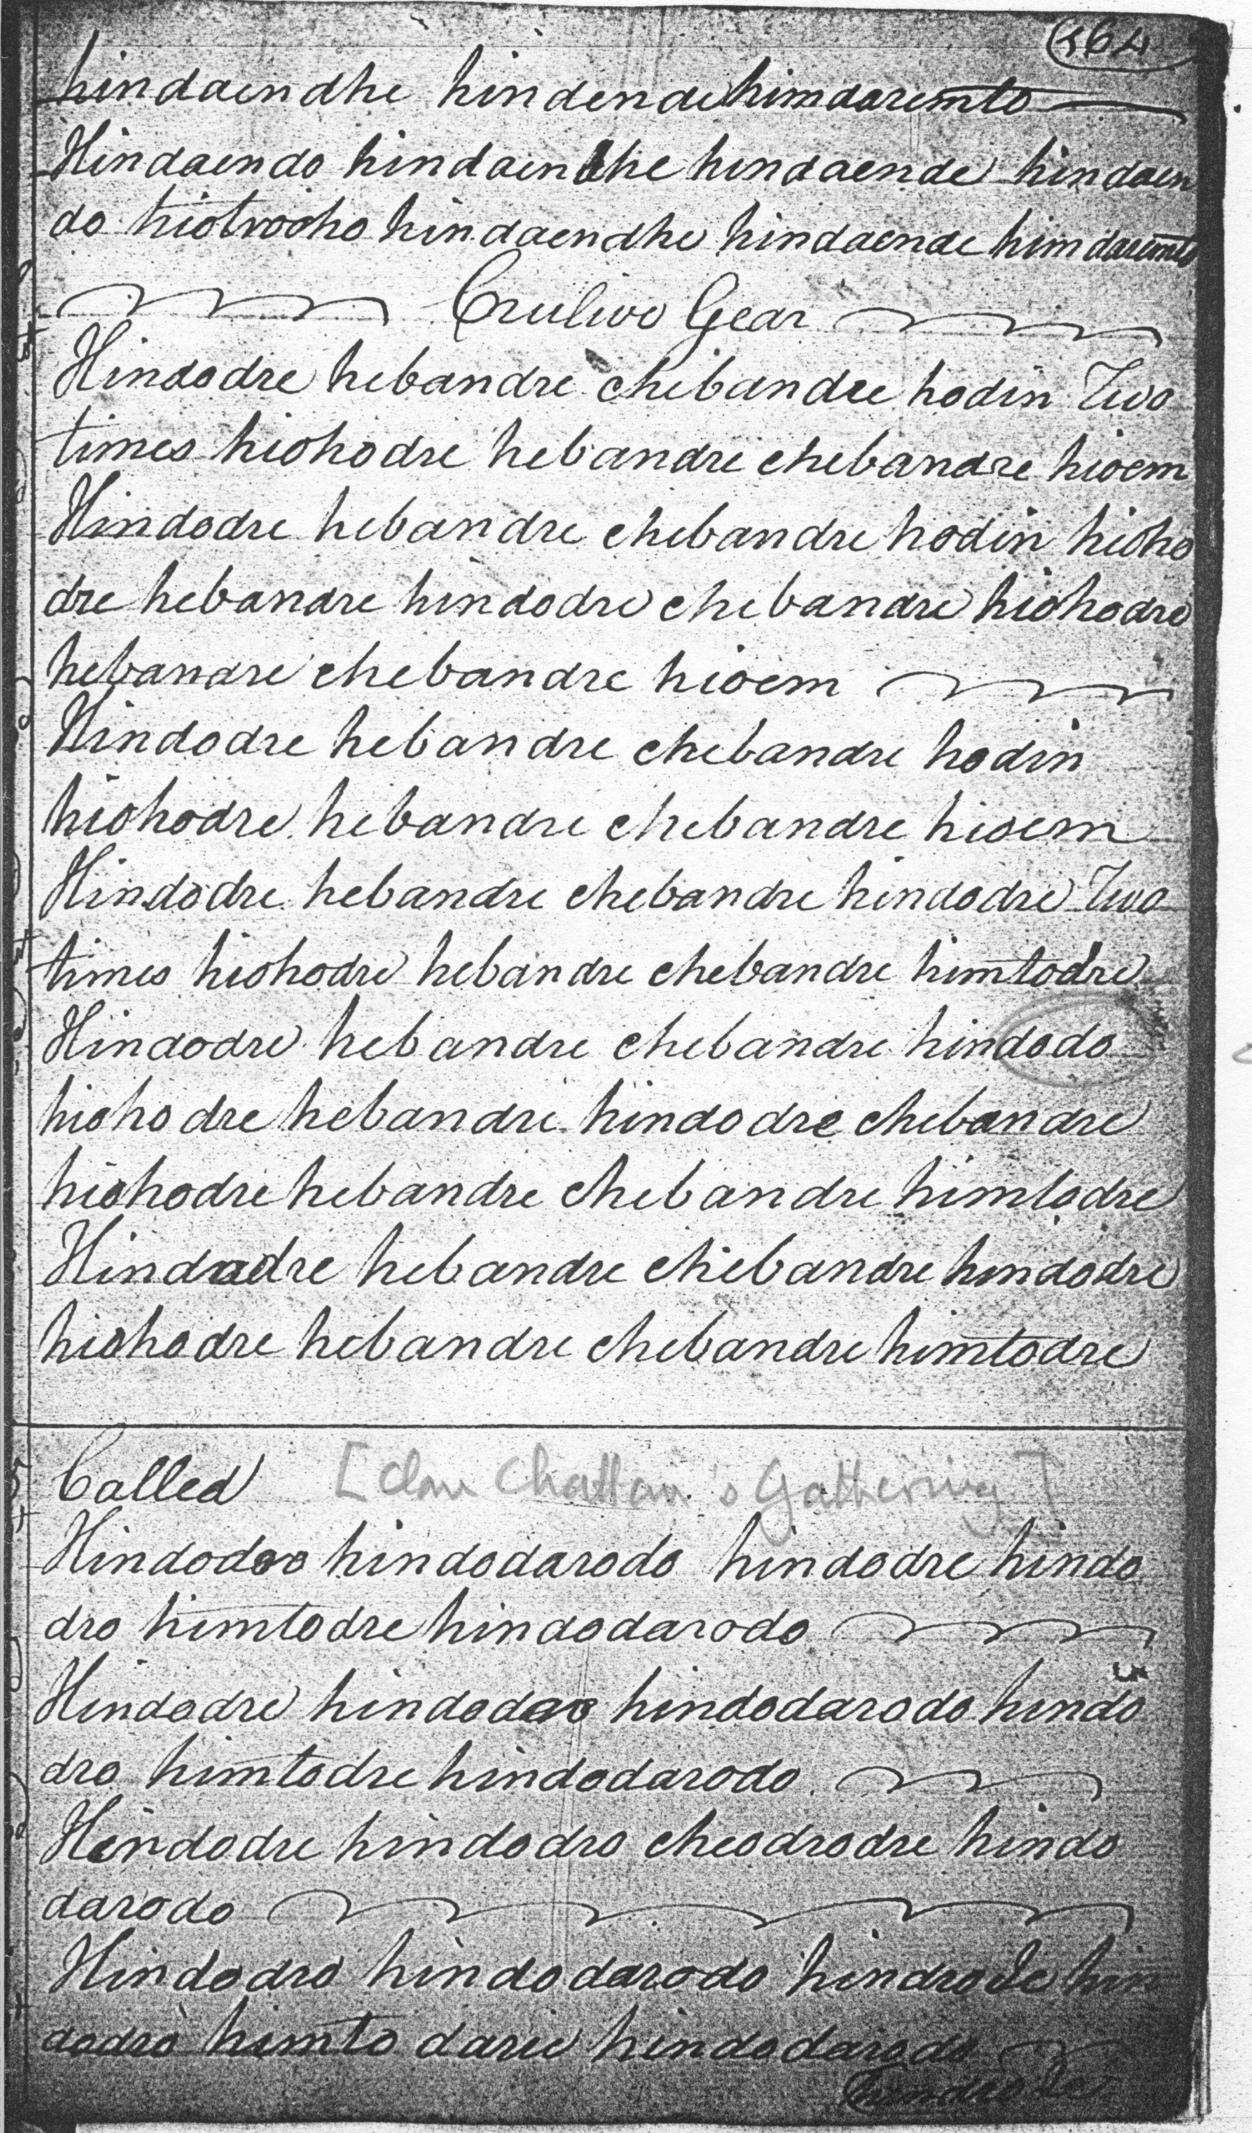 164
hindaendhe hindende himdaremto
Hindaendo hindaendhe hindaende hindaen
do hiotrooho hindaendhe hindaende himdaremto
Crulivo Gear
Hindodre hebandre chebandre hodin Two
times hiohodre hebandre chebandre hioem
Hindodre hebandre chebandre hodin hioho
dre hebandre hindodre chebandre hiohodre
hebandre chebandre hioem
Hindodre hebandre chebandre hodin
hiohodre hebandre chebandre hioem
Hindodre hebandre chebandre hindodre Two
times hiohodre hebandre chebandre himtodre
Hindodre hebandre chebandre hindodo
hiohodre hebandre hindodre chebandre
hiohodre hebandre chebandre himtodre
Hindodre hebandre chebandre hindodre
hiohodre hebandre chebandre himtodre
Called [Clan Chattan's Gathering]
Hindodro hindodarodo hindodre hindo
dro himtodre hindodarodo
Hindodre hindodro hindodarodo hindo
dro himtodre hindodarodo
Hindodre hindodro cheodrodre hindo
darodo
Hindodro hindodarodo hindrode hin
dodro himto darie hindodarodo